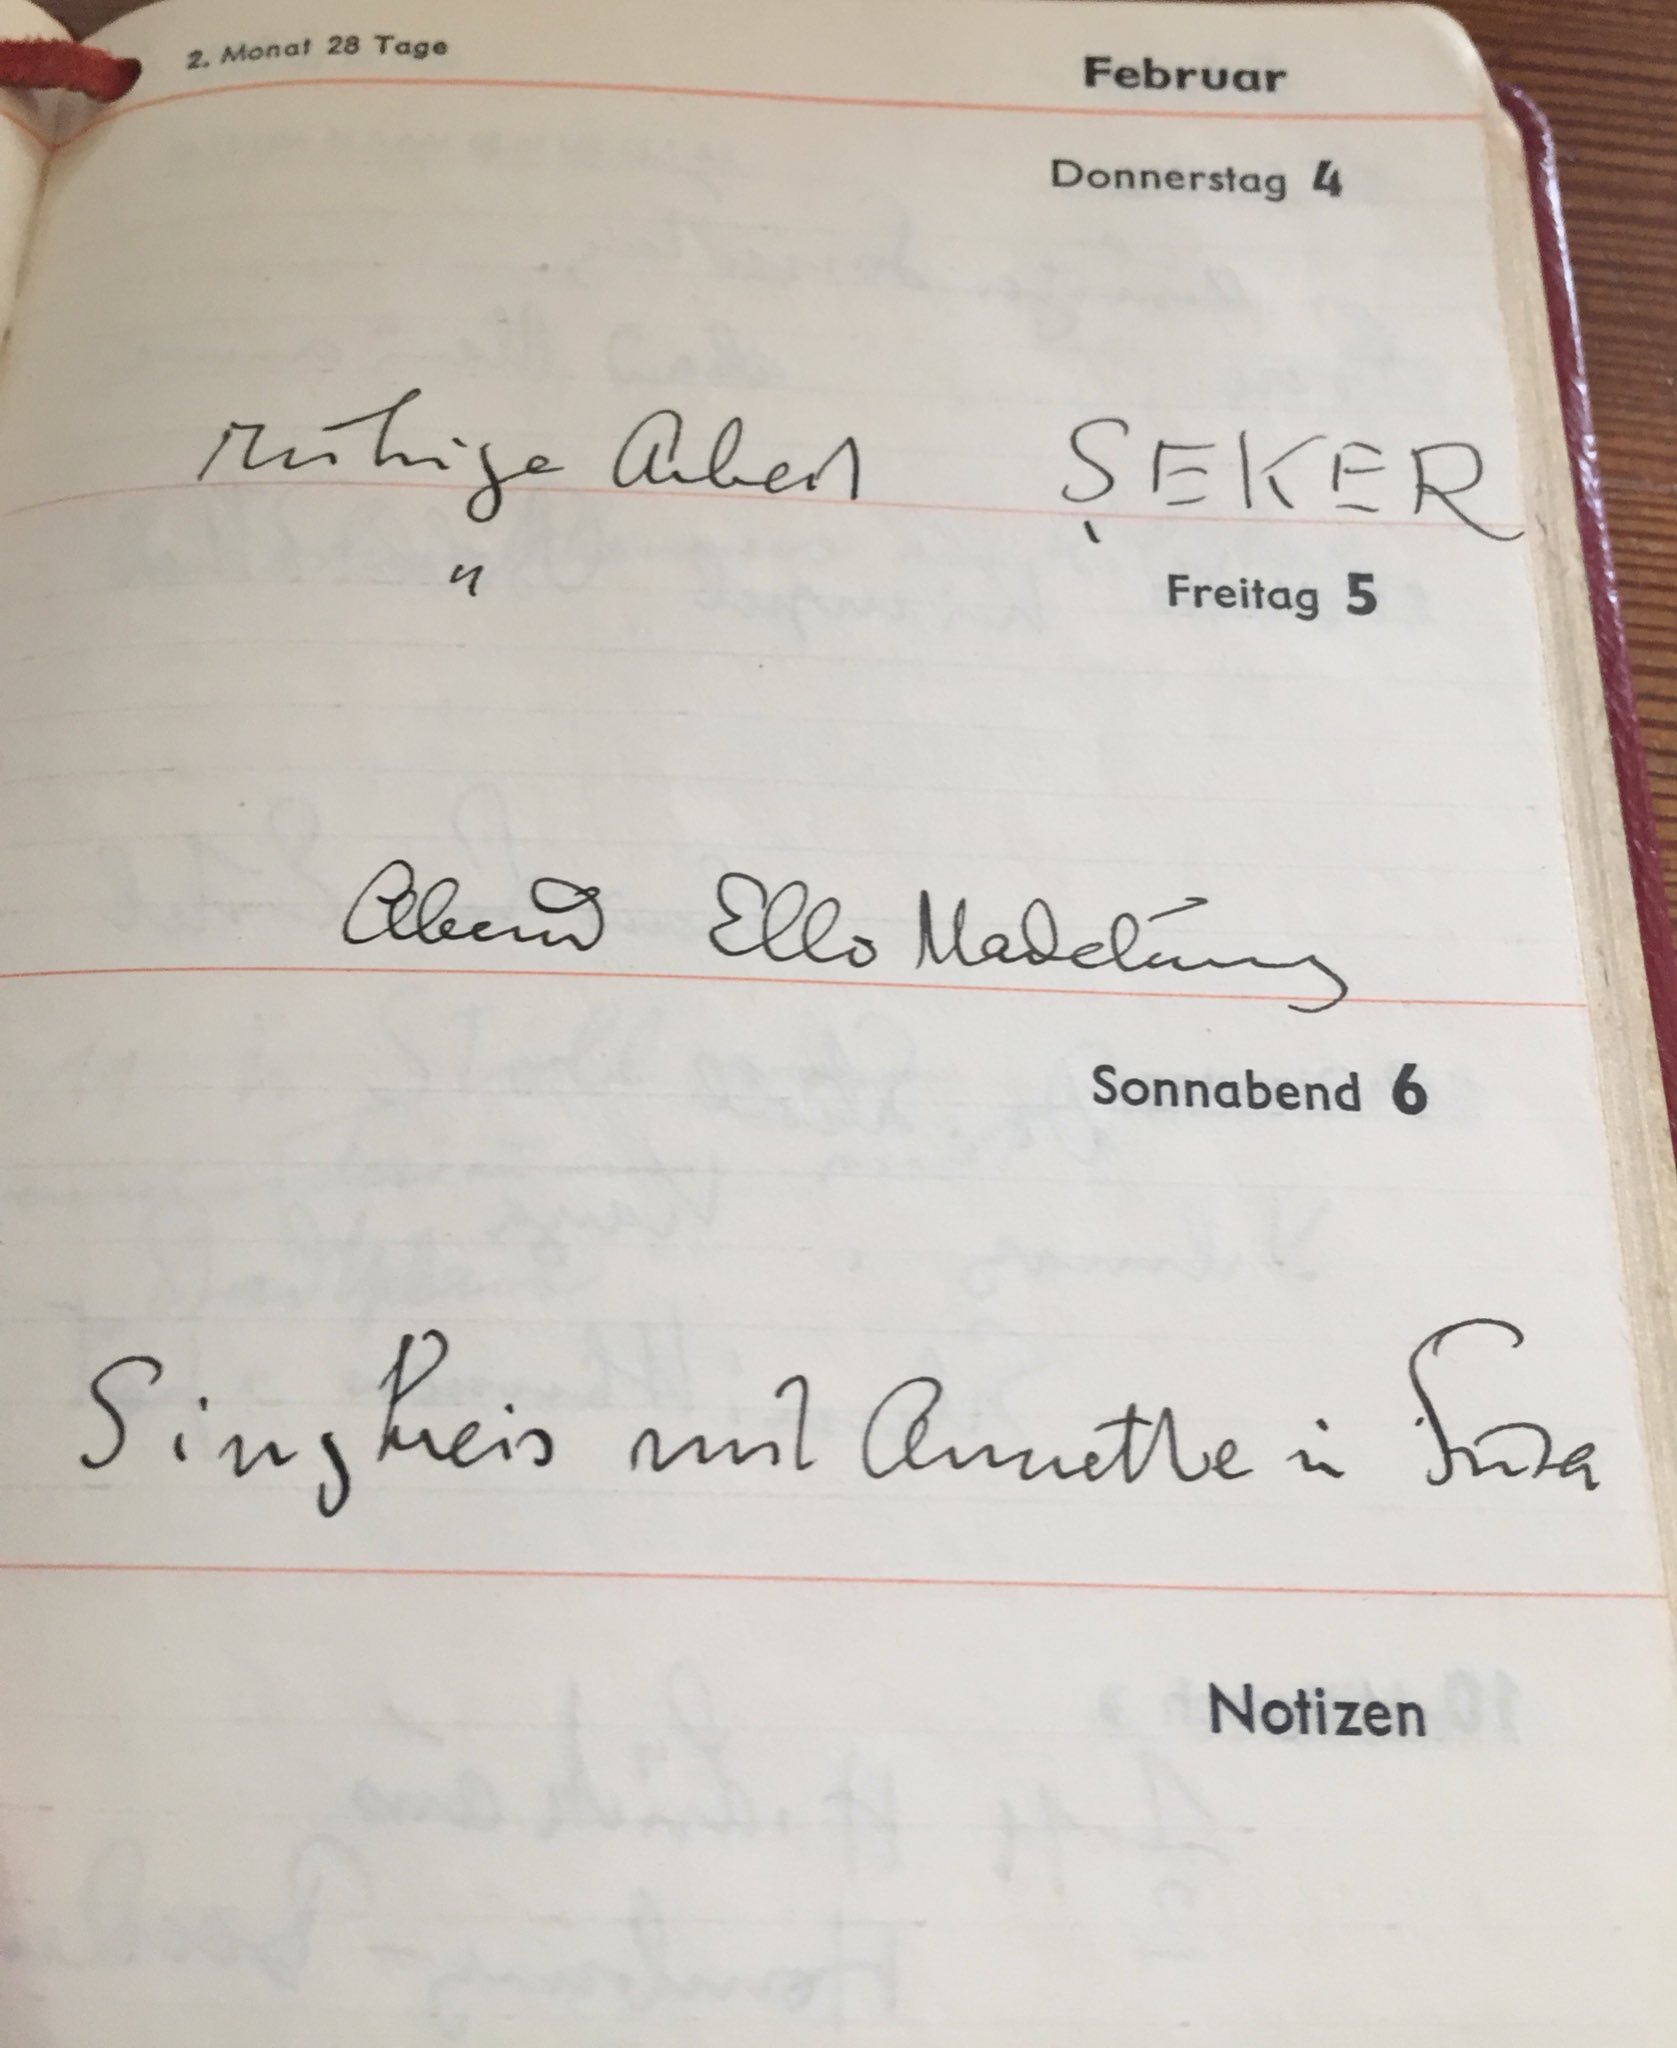 2. Monat 28 Tage Februar
Donnerstag 4
ruhige Arbeit ŞEKER
" Freitag 5
Abend Ello Madelung
Sonnabend 6
Singkreis mit Annette in
Notizen